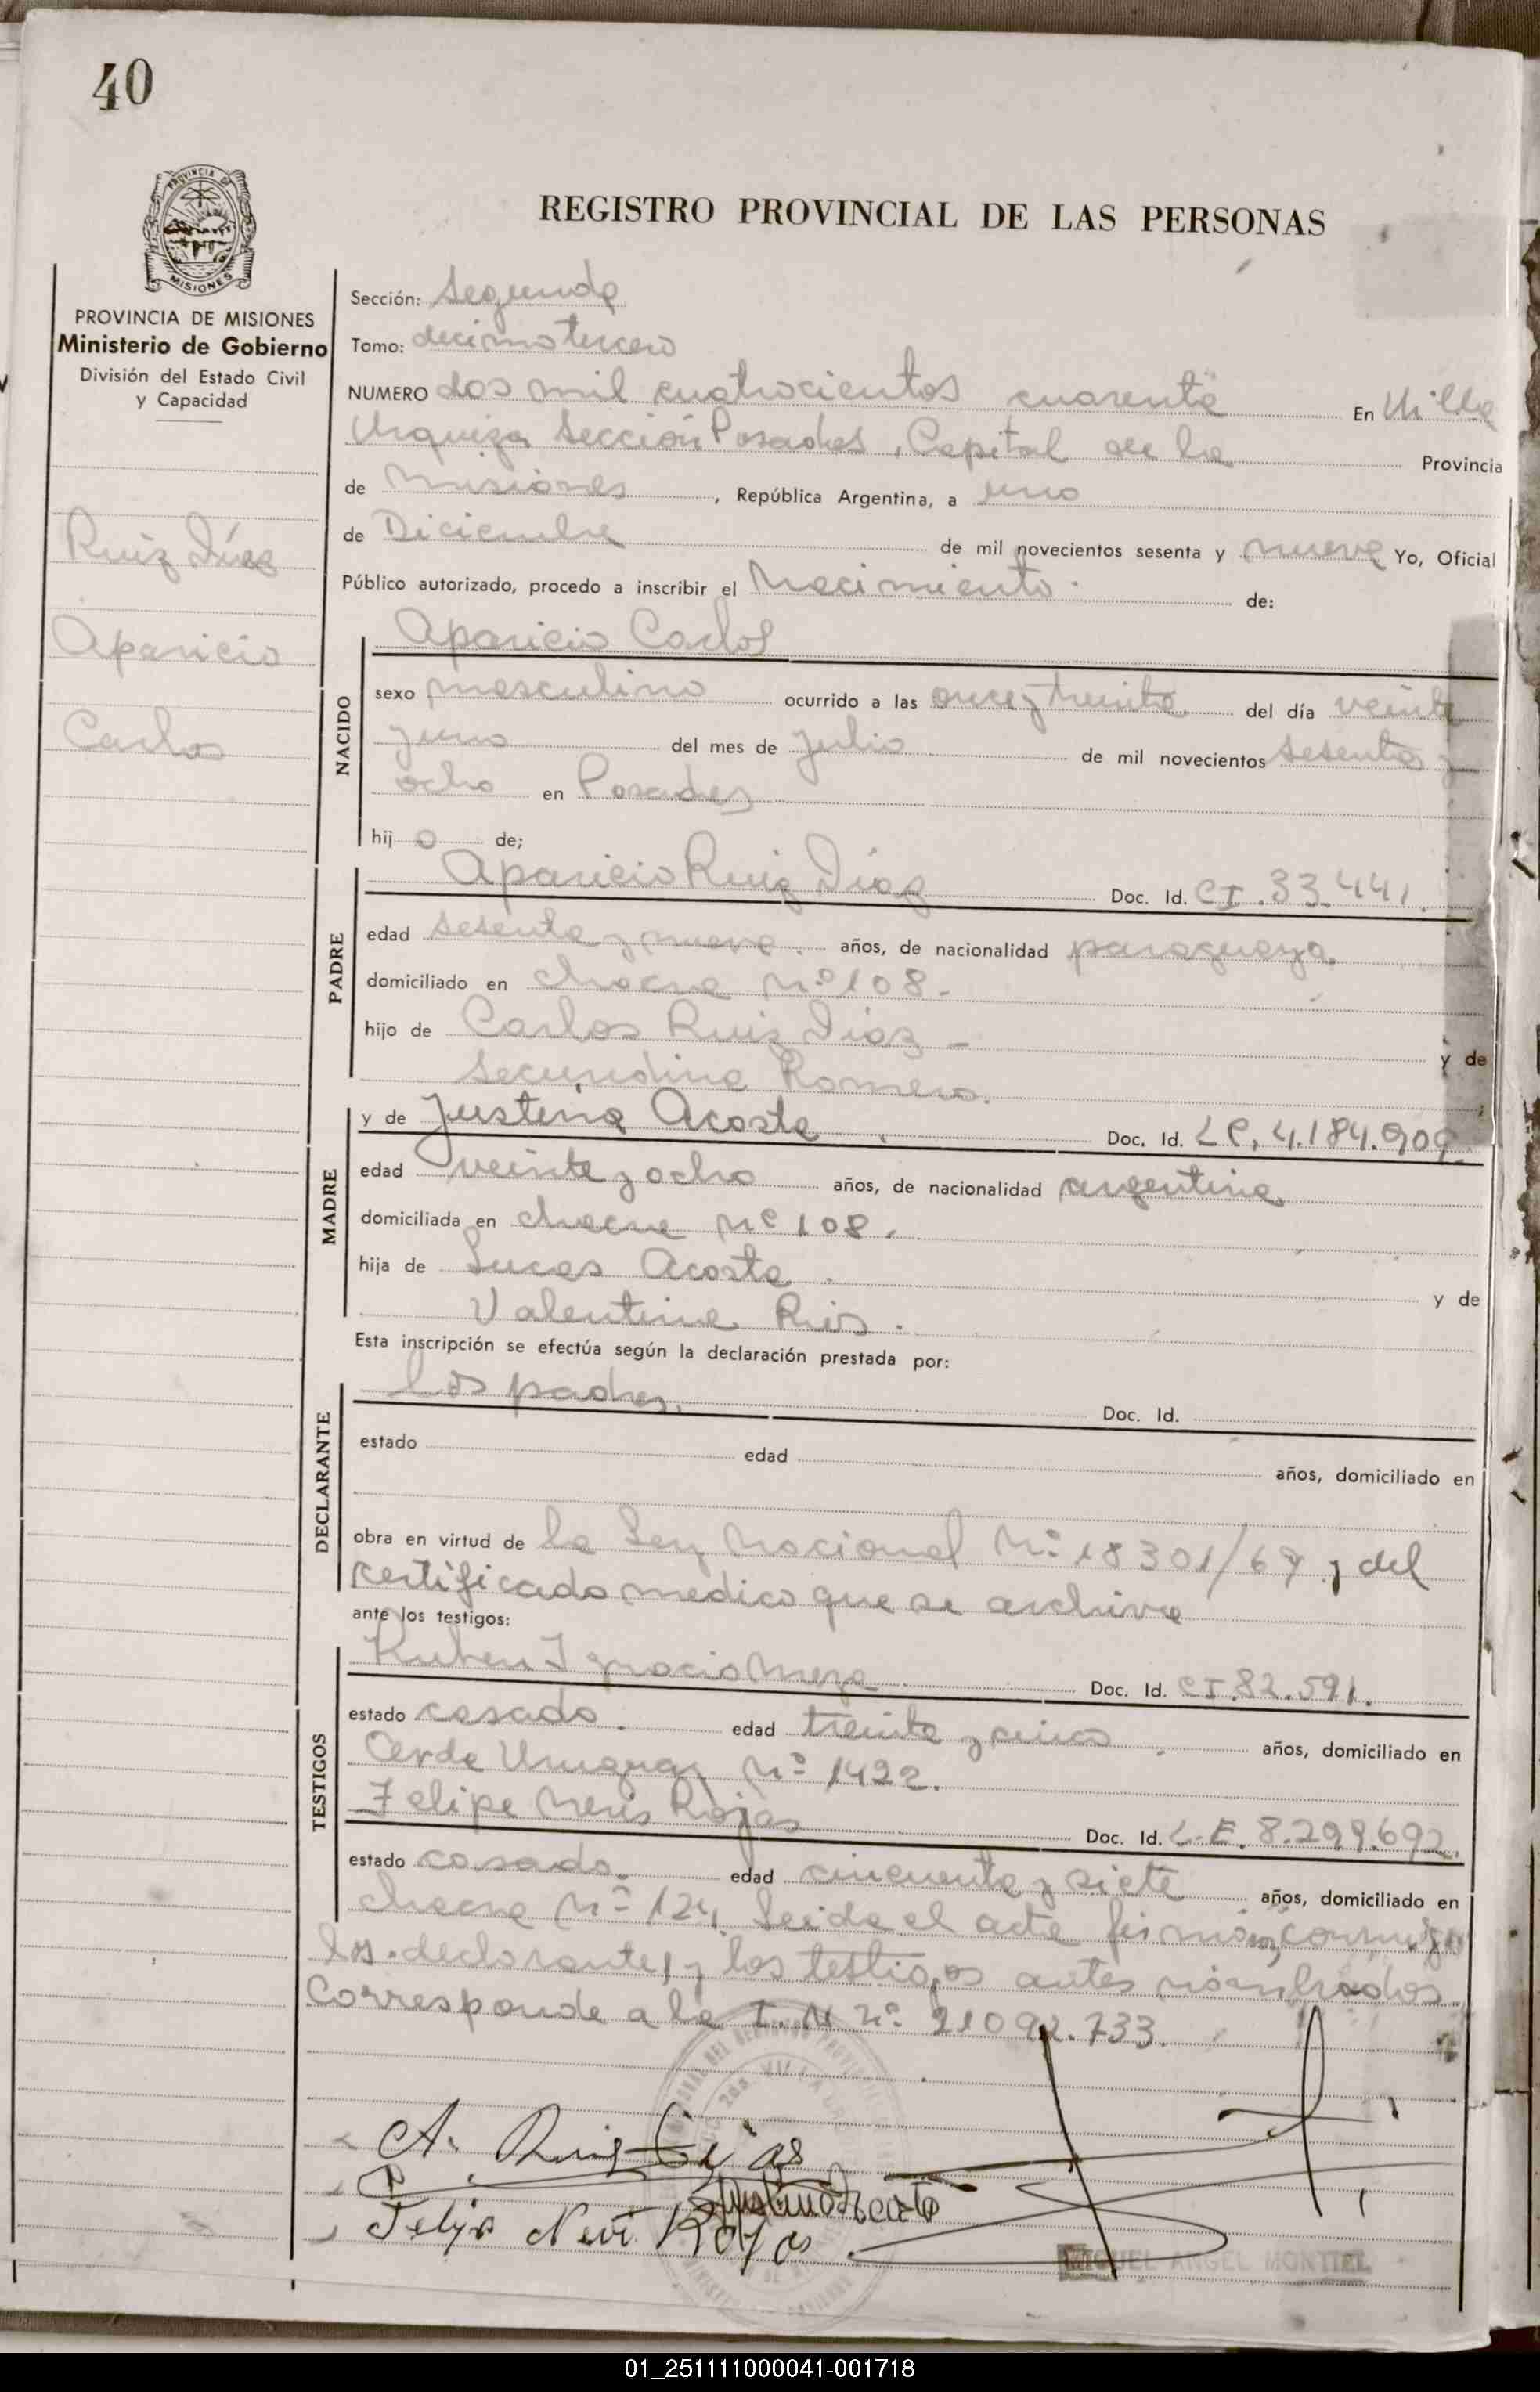 40
PROVINCIA DE MISIONES
REGISTRO PROVINCIAL DE LAS PERSONAS
PROVINCIA DE MISIONES
Ministerio de Gobierno
División del Estado Civil
y Capacidad
Ruiz Díaz
Aparicio
Carlos
Sección: Segunda
Tomo: decimotercero
NUMERO dos mil cuatrocientos cuarenta En Villa
Urquiza Sección Posadas, Capital de la Provincia
de Misiones, República Argentina, a uno
de Diciembre de mil novecientos sesenta y nueve Yo, Oficial
Público autorizado, procedo a inscribir el Nacimiento de:
NACIDO
Aparicio Carlos
sexo masculino ocurrido a las once y treinta del día veinte
y uno del mes de Julio de mil novecientos sesenta y
ocho en Posadas
hijo de;
PADRE
Aparicio Ruiz Díaz Doc. Id. CI.33.441.
edad sesenta y nueve. años, de nacionalidad paraguaya.
domiciliado en chacra nº 108.-
hijo de Carlos Ruiz Díaz - y de
Secundina Romero.
MADRE
y de Justina Acosta. Doc. Id. LC. 4.184.909.
edad veinte y ocho años, de nacionalidad argentina
domiciliada en chacra nº 108.
hija de Lucas Acosta. y de
Valentina Rios.
Esta inscripción se efectúa según la declaración prestada por:
DECLARANTE
los padres. Doc. Id.
estado edad años, domiciliado en
obra en virtud de la Ley Nacional Nº 18301/69 y del
certificado medico que se archiva
ante los testigos:
TESTIGOS
Ruben Ignacio Meza Doc. Id. CI.82.591.
estado casado. edad treinta y cinco. años, domiciliado en
Avda Uruguay Nº 1422.
Felipe Neris Rojas Doc. Id. L.E. 8.299.692.
estado casado. edad cincuenta y siete años, domiciliado en
chacra Nº 124. Leida el acta firman conmigo
los declarantes y los testigos antes nombrados.
Corresponde a la I.N nº 21092.733.
A. Ruiz Días
Justina Acosta
Felipe Neri Rojas
MIGUEL ANGEL MONTIEL
01_251111000041-001718